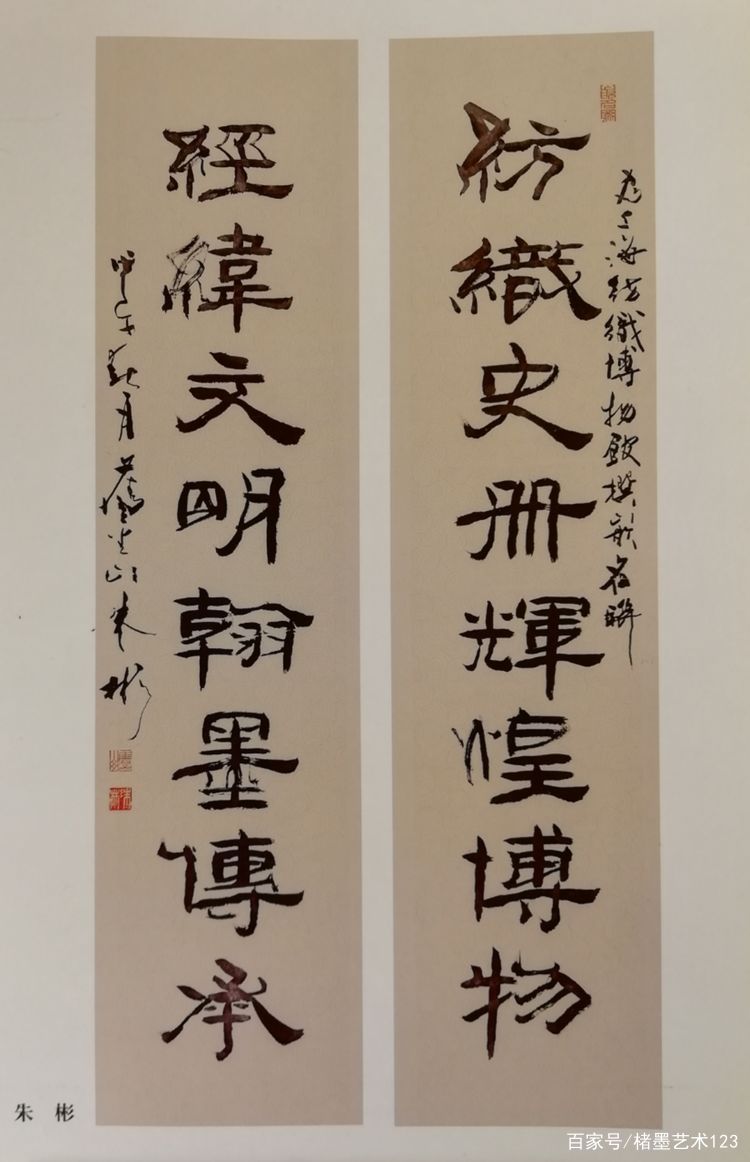 為上海紡織博物館撰嵌名聯
紡織史册輝煌博物
經緯文明翰墨傳承
甲午秋月
朱彬
朱 彬
百家号/楮墨艺术123